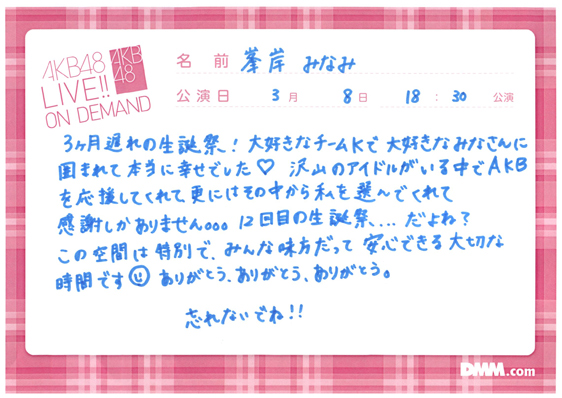 AKB48
LIVE!!
ON DEMAND
AKB
48
名前 峯岸 みなみ
公演日 3月 8日 18:30 公演
3ヶ月遅れの生誕祭！大好きなチームKで大好きなみなさんに
囲まれて本当に幸せでした♡ 沢山のアイドルがいる中でAKB
を応援してくれて更にはその中から私を選んでくれて
感謝しかありません。。。12回目の生誕祭、...だよね？
この空間は特別で、みんな味方だって安心できる大切な
時間です☺ ありがとう、ありがとう、ありがとう。
忘れないでね!!
DMM.com